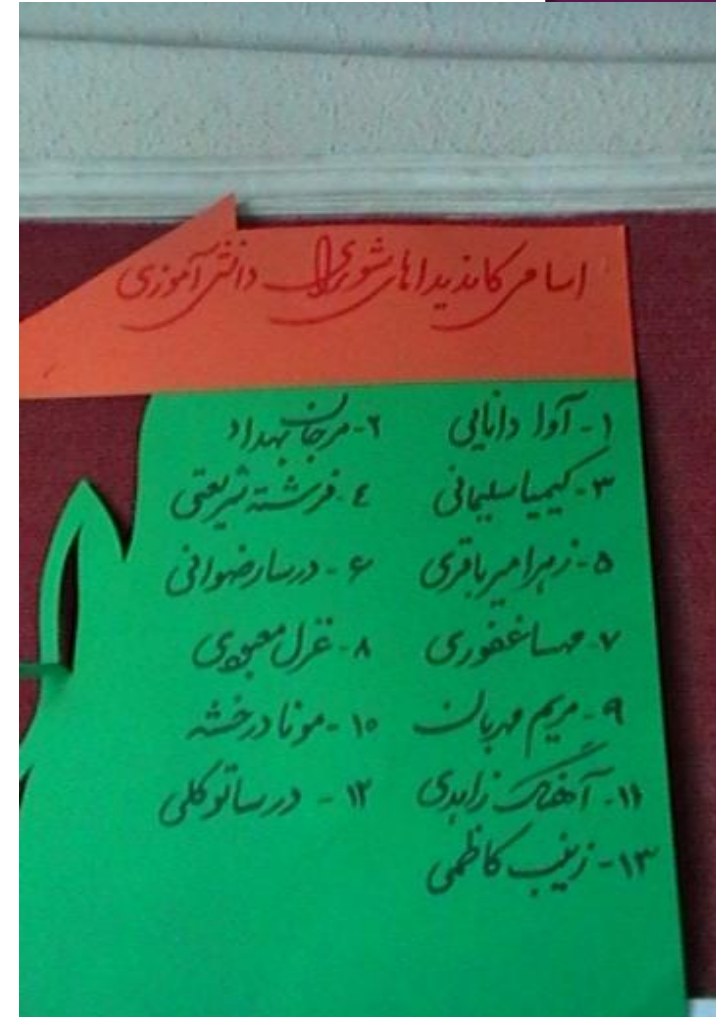 اسامی کاندیداهای شورای دانش آموزی
۱- آوا دانایی ۲- مرجان بهداد
۳- کیمیا سلیمانی ٤- فرشته شریعتی
۵- زهرا میرباقری ۶- درسا رضوانی
۷- مهسا غفوری ۸- غزل معبودی
۹- مریم مهربان ۱۰- مونا درخشه
۱۱- آهنگ زاهدی ۱۲- درسا توکلی
۱۳- زینب کاظمی